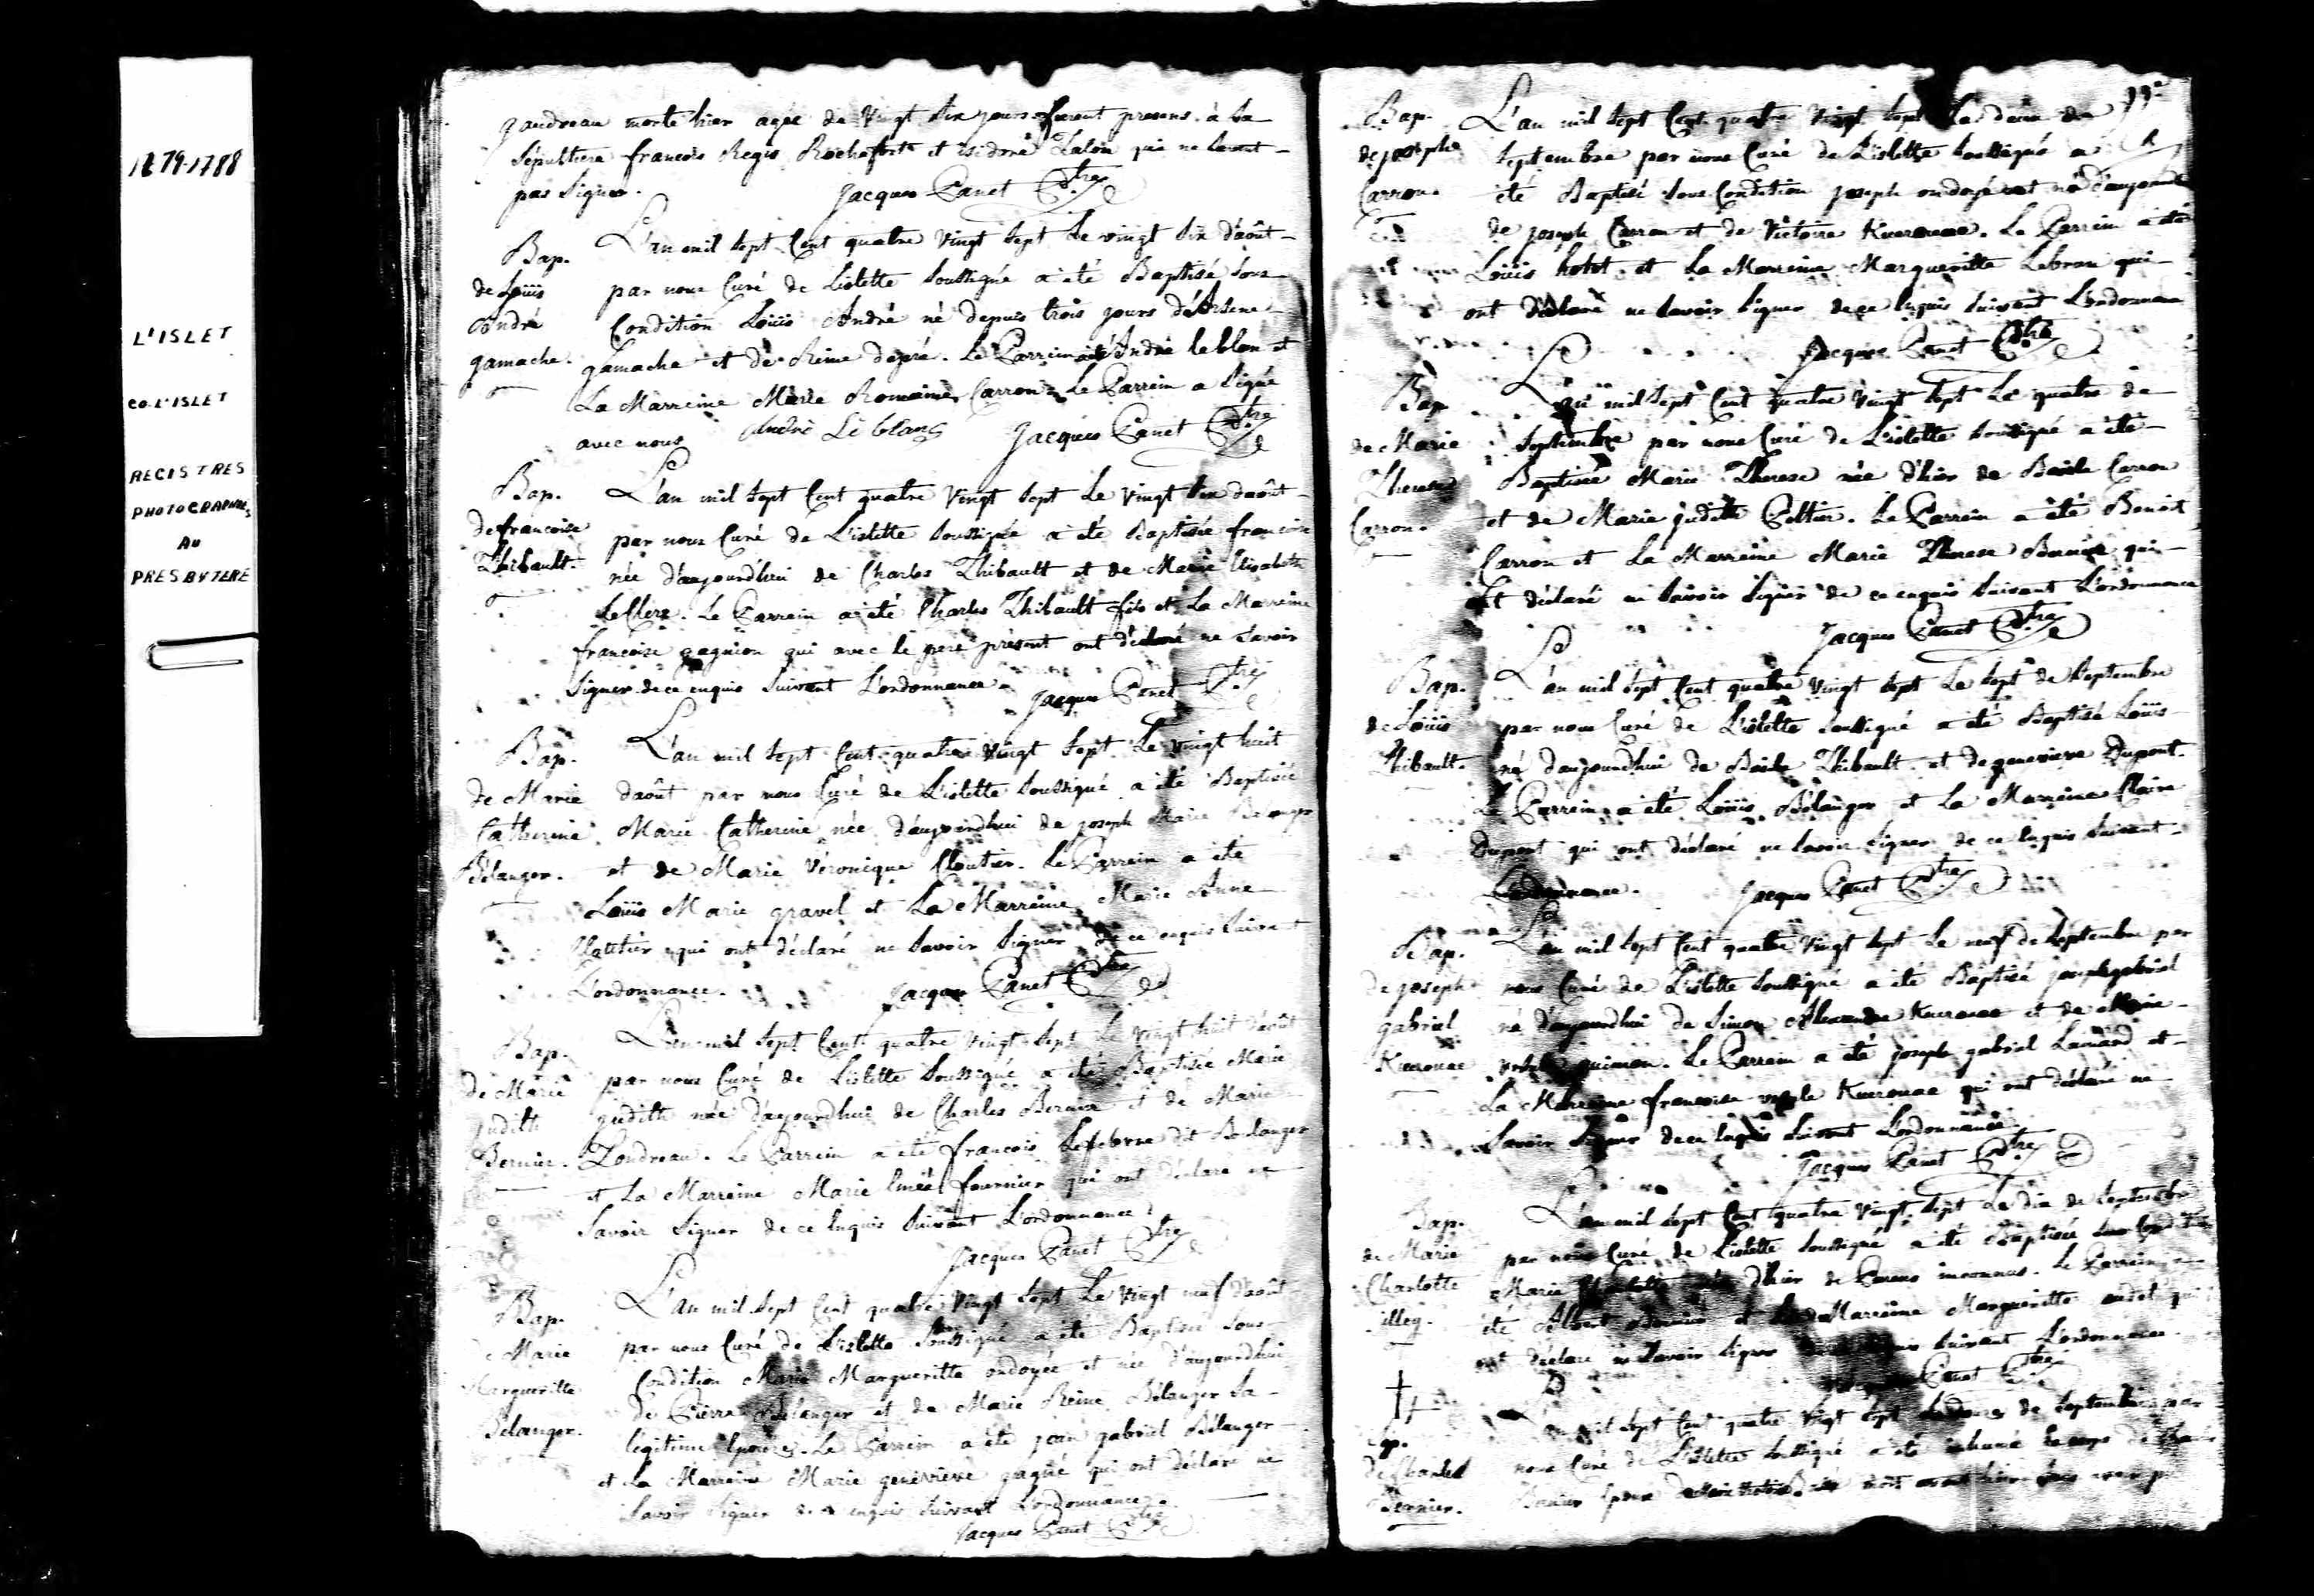 1679-1788
L'ISLET
CO. L'ISLET
REGISTRES
PHOTOGRAPHIES
AU
PRESBYTERE
gaudreau morte hier agée de Vingt six jours furent presens à la
Sépulture francois Regis Rochefort et isidore Talon qui ne savent
pas Signer. Jacques Panet Ptre
Bap.
de Loüis
André
gamache.
L'an mil sept Cent quatre Vingt Sept Le vingt six d'août
par nous Curé de Lislette Soussigné a été Baptisé sous
Condition Loüis André né depuis trois jours d'Arsene
gamache et de Reine dupré. Le Parrein a été André leblan et
La Marreine Marie Romaine Carron Le Parrein a Signé
avec nous André Le blans Jacques Panet Ptre
Bap.
de francoise
Thibault.
L'an mil Sept Cent quatre Vingt Sept Le Vingt Six d'août
par nous Curé de L'islette Soussigné a été Baptisée francoise
née d'aujourd'hui de Charles Thibault et de Marie Elisabeth
LeClerc. Le Parrein a été Charles Thibault fils et La Marreine
francoise gagnion qui avec le pere présent ont déclaré ne Savoir
Signer de ce enquis Suivant L'ordonnance Jacques Panet Ptre
Bap.
de Marie
Catherine
Bélanger.
L'an mil Sept Cent quatre Vingt Sept Le Vingt huit
d'août par nous Curé de L'islette Soussigné a été Baptisée
Marie Catherine née d'aujourdhui de joseph Marie Belanger
et de Marie Véronique Cloutier. Le Parrein a été
Loüis Marie gravel et La Marreine Marie Anne
Cloutier qui ont déclaré ne Savoir Signer de ce enquis Suivant
L'ordonnance. Jacques Panet Ptre
Bap.
de Marie
judith
Bernier.
L'an mil Sept Cent quatre Vingt Sept Le Vingt huit d'août
par nous Curé de Lislette Soussigné a été Baptisée Marie
judith née d'aujourdhui de Charles Bernier et de Marie
Tondreau. Le Parrein a été francois Lefebvre dit Boulanger
et La Marreine Marie fournier qui ont déclaré ne
Savoir Signer de ce Enquis Suivant L'ordonnance
Jacques Panet Ptre
Bap.
de Marie
Margueritte
Bélanger.
L'an mil Sept Cent quatre Vingt Sept Le Vingt neuf d'août
par nous Curé de L'islette Soussigné a été Baptisée Sous
Condition Marie Margueritte ondoyée et née d'aujourdhui
de Pierre Bélanger et de Marie Reine Bélanger Sa
légitime Epouse. Le Parrein a été jean gabriel Bélanger
et La Marreine Marie genevieve gagné qui ont déclaré ne
Savoir Signer de ce enquis Suivant L'ordonnance.
Jacques Panet Ptre
Bap.
de joseph
Carron.
L'an mil Sept Cent quatre Vingt Sept Le deux de
Septembre par nous Curé de L'islette Soussigné a
été Baptisé Sous Condition joseph ondoyé et né d'aujourd'hui
de joseph Carron et de Victoire Kuerouac. Le Parrein a été
Loüis hotot et La Marreine Margueritte Lebrun qui
ont déclaré ne Savoir Signer de ce Enquis Suivant L'ordonnance
Jacques Panet Ptre
Bap.
de Marie
Therese
Carron.
L'an mil Sept Cent quatre Vingt Sept Le quatre de
Septembre par nous Curé de L'islette Soussigné a été
Baptisée Marie Therese née d'hier de Basile Carron
et de Marie judith Peltier. Le Parrein a été Benoit
Carron et La Marreine Marie Therese Bernier qui
ont déclaré ne Savoir Signer de ce enquis Suivant L'ordonnance
Jacques Panet Ptre
Bap.
de Loüis
Thibault.
L'an mil Sept Cent quatre Vingt Sept Le Sept de Septembre
par nous Curé de L'islette Soussigné a été Baptisé Loüis
né d'aujourdhui de Basile Thibault et de genevieve Dupont.
Le Parrein a été Loüis Bélanger et La Marreine Claire
Dupont qui ont déclaré ne Savoir Signer de ce Enquis Suivant
L'ordonnance. Jacques Panet Ptre
Bap.
de joseph
gabriel
Kuerouac
L'an mil Sept Cent quatre Vingt Sept Le neuf de Septembre par
nous Curé de L'islette Soussigné a été Baptisé joseph gabriel
né d'aujourdhui de Simon Alexandre Kuerouac et de Marie
ursule guimon. Le Parrein a été joseph gabriel Lamard et
La Marreine francoise ursule Kuerouac qui ont déclaré ne
Savoir Signer de ce Enquis Suivant L'ordonnance.
Jacques Panet Ptre
Bap.
de Marie
Charlotte
illég.
L'an mil Sept Cent quatre Vingt Sept Le dix de Septembre
par nous Curé de L'islette Soussigné a été Baptisée Sous Condition
Marie Charlotte née d'hier de Parens inconnus. Le Parrein a
été Albert Bernier et La Marreine Margueritte audet qui
ont déclaré ne Savoir Signer de ce enquis Suivant L'ordonnance.
Jacques Panet Ptre
Sep.
de Charles
Bernier.
L'an mil Sept Cent quatre Vingt Sept Le douze de Septembre par
nous Curé de L'islette Soussigné a été inhumé Le corps de Charles
Bernier Epoux de mort avant hier Sans avoir p